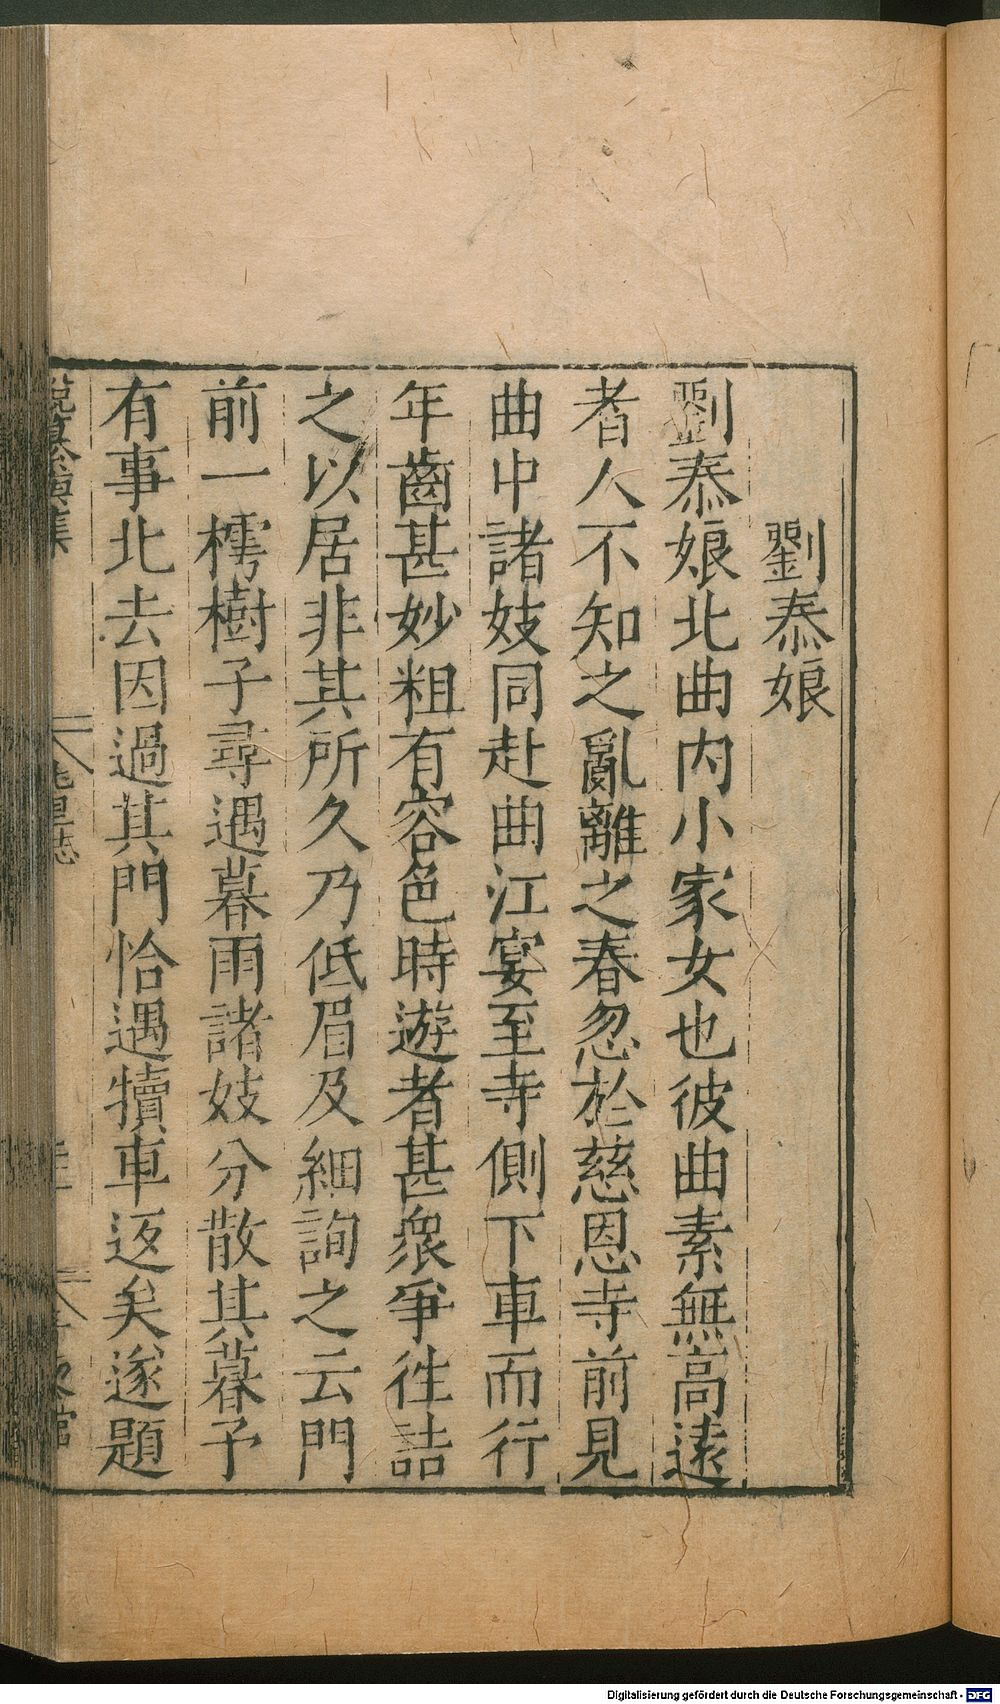 劉泰娘
劉泰娘北曲内小家女也彼曲素無高遠
者人不知之亂離之春忽於慈恩寺前見
曲中諸妓同赴曲江宴至寺側下車而行
年齒甚妙粗有容色時遊者甚衆爭徃詰
之以居非其所久乃低眉及細詢之云門
前一樗樹子尋遇暮雨諸妓分散其暮予
有事北去因過其門恰遇犢車返矣遂題
北里志
Digitalisierung gefördert durch die Deutsche Forschungsgemeinschaft - DFG